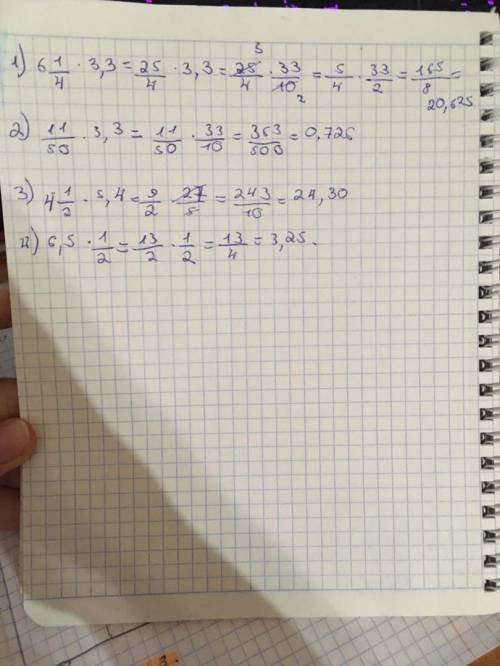 1) 6 1/4 · 3,3 = 25/4 · 3,3 = 25/4 · 33/10 = 5/4 · 33/2 = 165/8 =
5 2
20,625
2) 11/50 · 3,3 = 11/50 · 33/10 = 363/500 = 0,726
3) 4 1/2 · 5,4 = 9/2 · 27/5 = 243/10 = 24,30
4) 6,5 · 1/2 = 13/2 · 1/2 = 13/4 = 3,25.